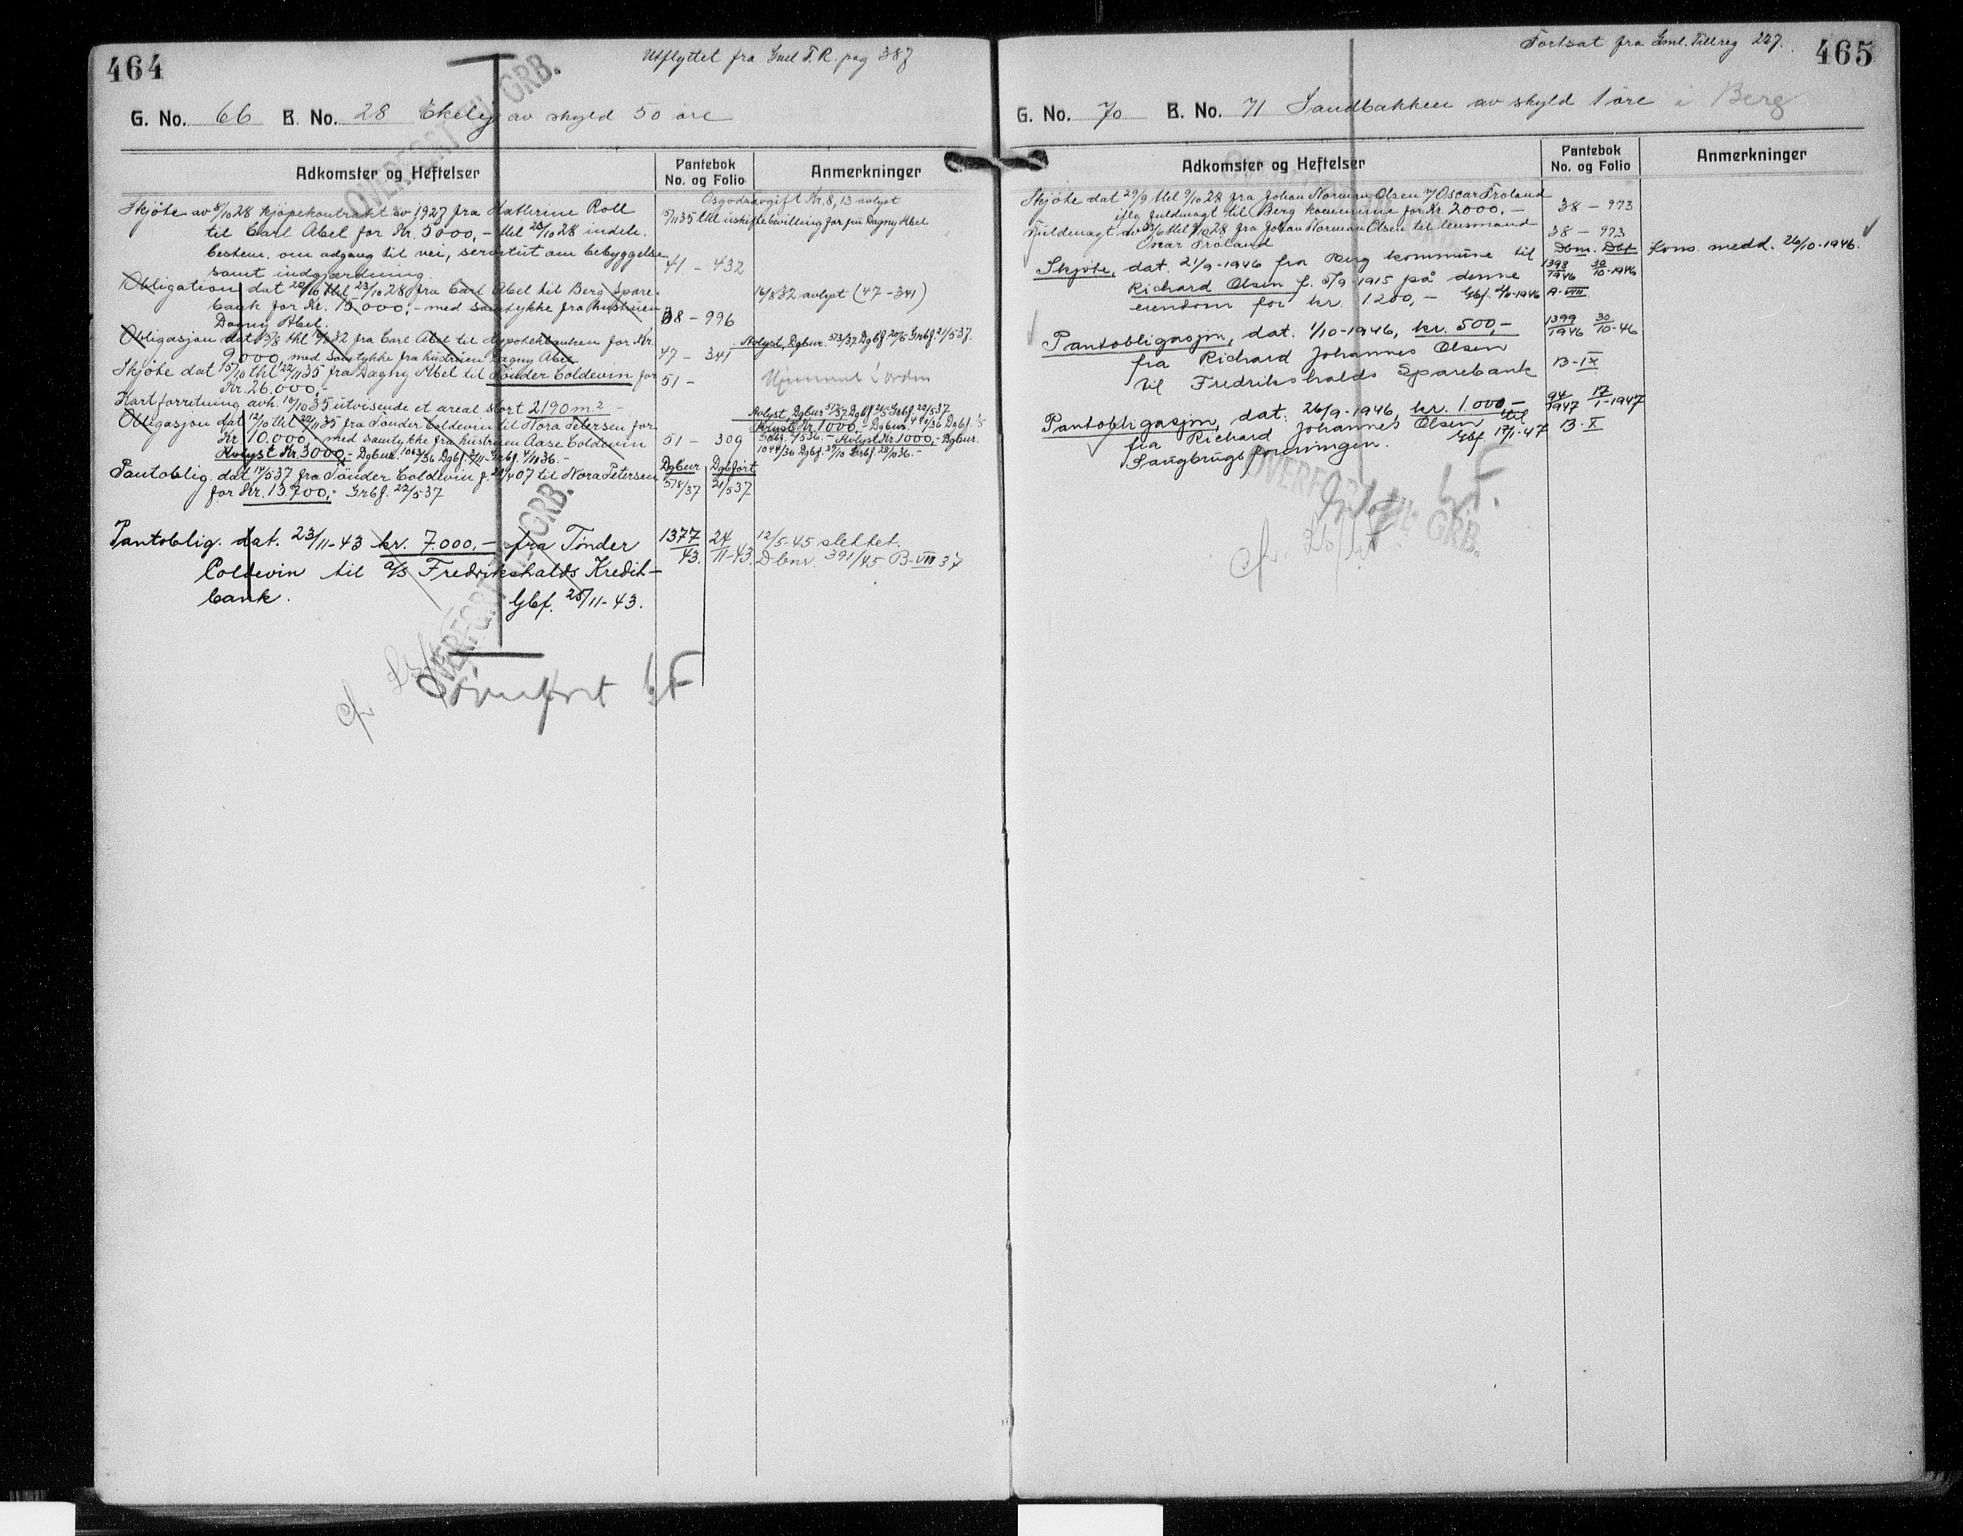 464
Utflyttet fra Gml T.R. pag 387
G. No. 66 B. No. 28 Ekelij av skyld 50 øre
Adkomster og Heftelser
Pantebok
No. og Folio
Anmerkninger
OVERFØRT TIL GRB.
Osgodsavgift Kr. 8,13 avlyst
Skjøte av 8/10 28 kjøpekontrakt av 1927 fra Kathrine Roll
5/11 35 thl uskiftebevilling for fru Dagny Abel
til Carl Abel for Kr. 5000,- thl 23/10 28 indeh.
bestem. om adgang til vei, servitut om bebyggelse
samt indgjærdning. 41 - 432
Obligation dat 22/10 thl 23/10 28 fra Carl Abel til Berg Spare-
16/8 32 avlyst (47-341)
bank for Kr. 15000,- med samtykke fra hustruen
Dagny Abel. 38 - 996
Obligasjon dat 13/8 thl 16/8 32 fra Carl Abel til Hypotekbanken for Kr.
Avlyst, Dgbnr. 573/37 Dgbf 20/5 Grbf. 21/5 37.
9000, med samtykke fra hustruen Dagny Abel 47 - 341
Skjøte dat 15/10 thl 22/11 35 fra Dagny Abel til Tønder Coldevin for
Kr. 26.000,- 51 -
Kartforretning avh. 10/10 35 utvisende et areal stort 2190 m2 -
Obligasjon dat 12/10 thl 22/11 35 fra Tønder Coldevin til Nora Petersen for
Kr 10.000,- med samtykke fra hustruen Aase Coldevin 51 - 309
Avlyst Kr. 1000,- Dgbnr.
Avlyst Kr. 1000,- Dgbnr.
Avlyst Kr. 3000,- Dgbnr. 1063/36
1044/36 Dgbf. 27/10 Grbf. 28/10 36. -
Pantoblig. dat 14/5 37 fra Tønder Coldevin f. 21/4 07 til Nora Petersen
Dgbnr Dgbført
for Kr. 13900,- Grbf. 22/5 37
578/37 21/5 37
Pantoblig. dat. 23/11-43 kr. 7.000,- fra Tønder
1377/43. 24/11-43. 12/5-45 slettet.
Dbnr. 391/45 B-VIII 37
Coldevin til A/S Fredrikshalds Kredit-
bank. Gbf. 25/11-43.
OVERFØRT TIL GRB.
465
Fortsat fra Gml. Tillreg 227.
G. No. 70 B. No. 71 Sandbakken av skyld 1 øre i Berg
Adkomster og Heftelser
Pantebok
No. og Folio
Anmerkninger
Skjøte dat 29/9 thl 9/10 28 fra Johan Norman Olsen v/ Oscar Frøland
iflg fuldmagt til Berg kommune for Kr. 2000,- 38 - 973
Fuldmagt av 5/6 thl 9/10 28 fra Johan Norman Olsen til lensmand
Oscar Frøland 38 - 973
Dbnr. Dbf
Skjøte, dat. 21/9-1946 fra Berg kommune til
1398/1946 30/10-1946
Kons. medd. 26/10-1946.
Richard Olsen f. 5/9-1915 på denne
A-VIII
eiendom for kr. 1200,-
Pantobligasjon, dat. 1/10-1946, kr. 500,-
1399/1946 30/10-46
fra Richard Johannes Olsen
til Fredrikshalds Sparebank B-IX
Pantobligasjon, dat. 26/9-1946, kr. 1.000,-
94/1947 17/1-1947
fra Richard Johannes Olsen til
Saugbrugsforeningen. Gbf 17/1-47 B-X
OVERFØRT TIL GRB.